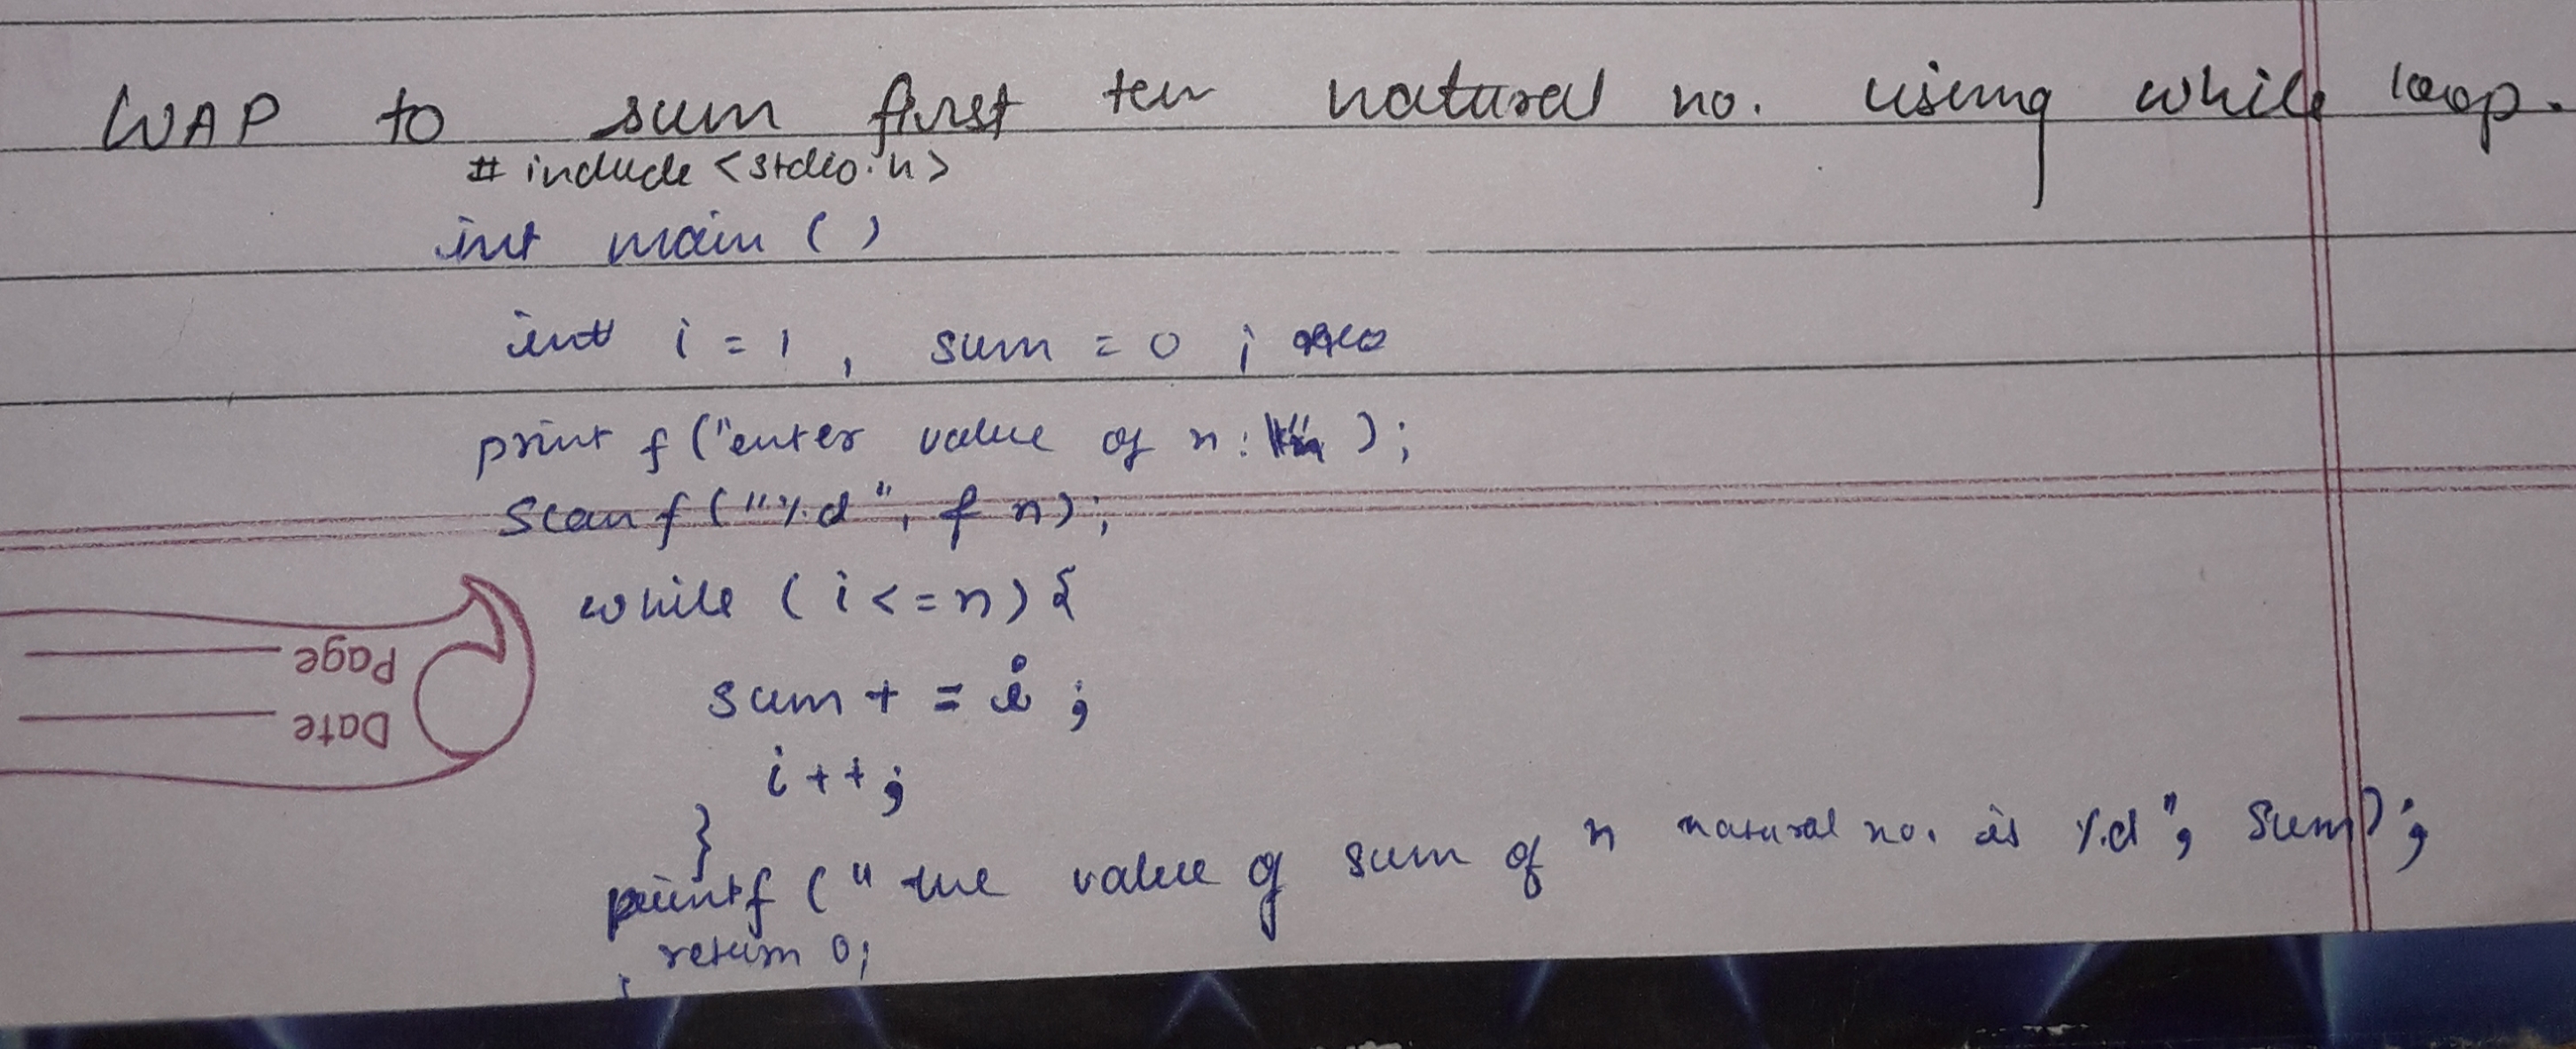 WAP to sum first ten natural no. using while loop.
# include <stdio.h>
int main ( )
int i = 1 , sum = 0 ;
print f ("enter value of n : " ) ;
Scan f ("%d" , & n) ;
while ( i <= n) {
sum + = i ;
i ++ ;
}
printf (" the value of sum of n natural no. is %d", sum) ;
return 0;
Page
Date